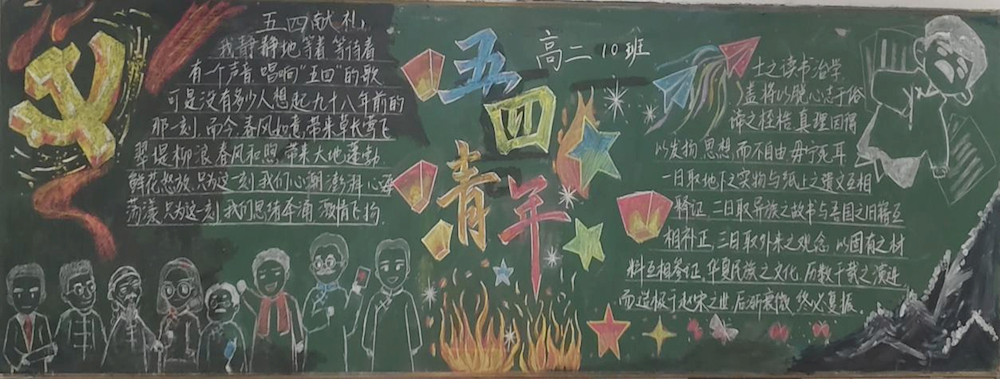 五四献礼
我静静地等着 等待着
有一个声音 唱响“五四”的歌
可是没有多少人想起九十八年前的
那一刻 而今 春风如意 带来草长莺飞
翠堤柳浪 春风和煦 带来大地蓬勃
鲜花怒放 只为这一刻 我们心潮澎湃 心海
荡漾 只为这一刻 我们思绪奔涌 激情飞扬
五四
青年
高二 10班
士之读书治学
盖将以脱心志于俗
谛之桎梏 真理因得
以发扬 思想而不自由 毋宁死耳
一曰取地下之实物与纸上之遗文互相
释证 二曰取异族之故书与吾国之旧籍互
相补正 三曰取外来之观念 以固有之材
料互相参证 华夏民族之文化 历数千载之演进
而造极于赵宋之世 后渐衰微 终必复振